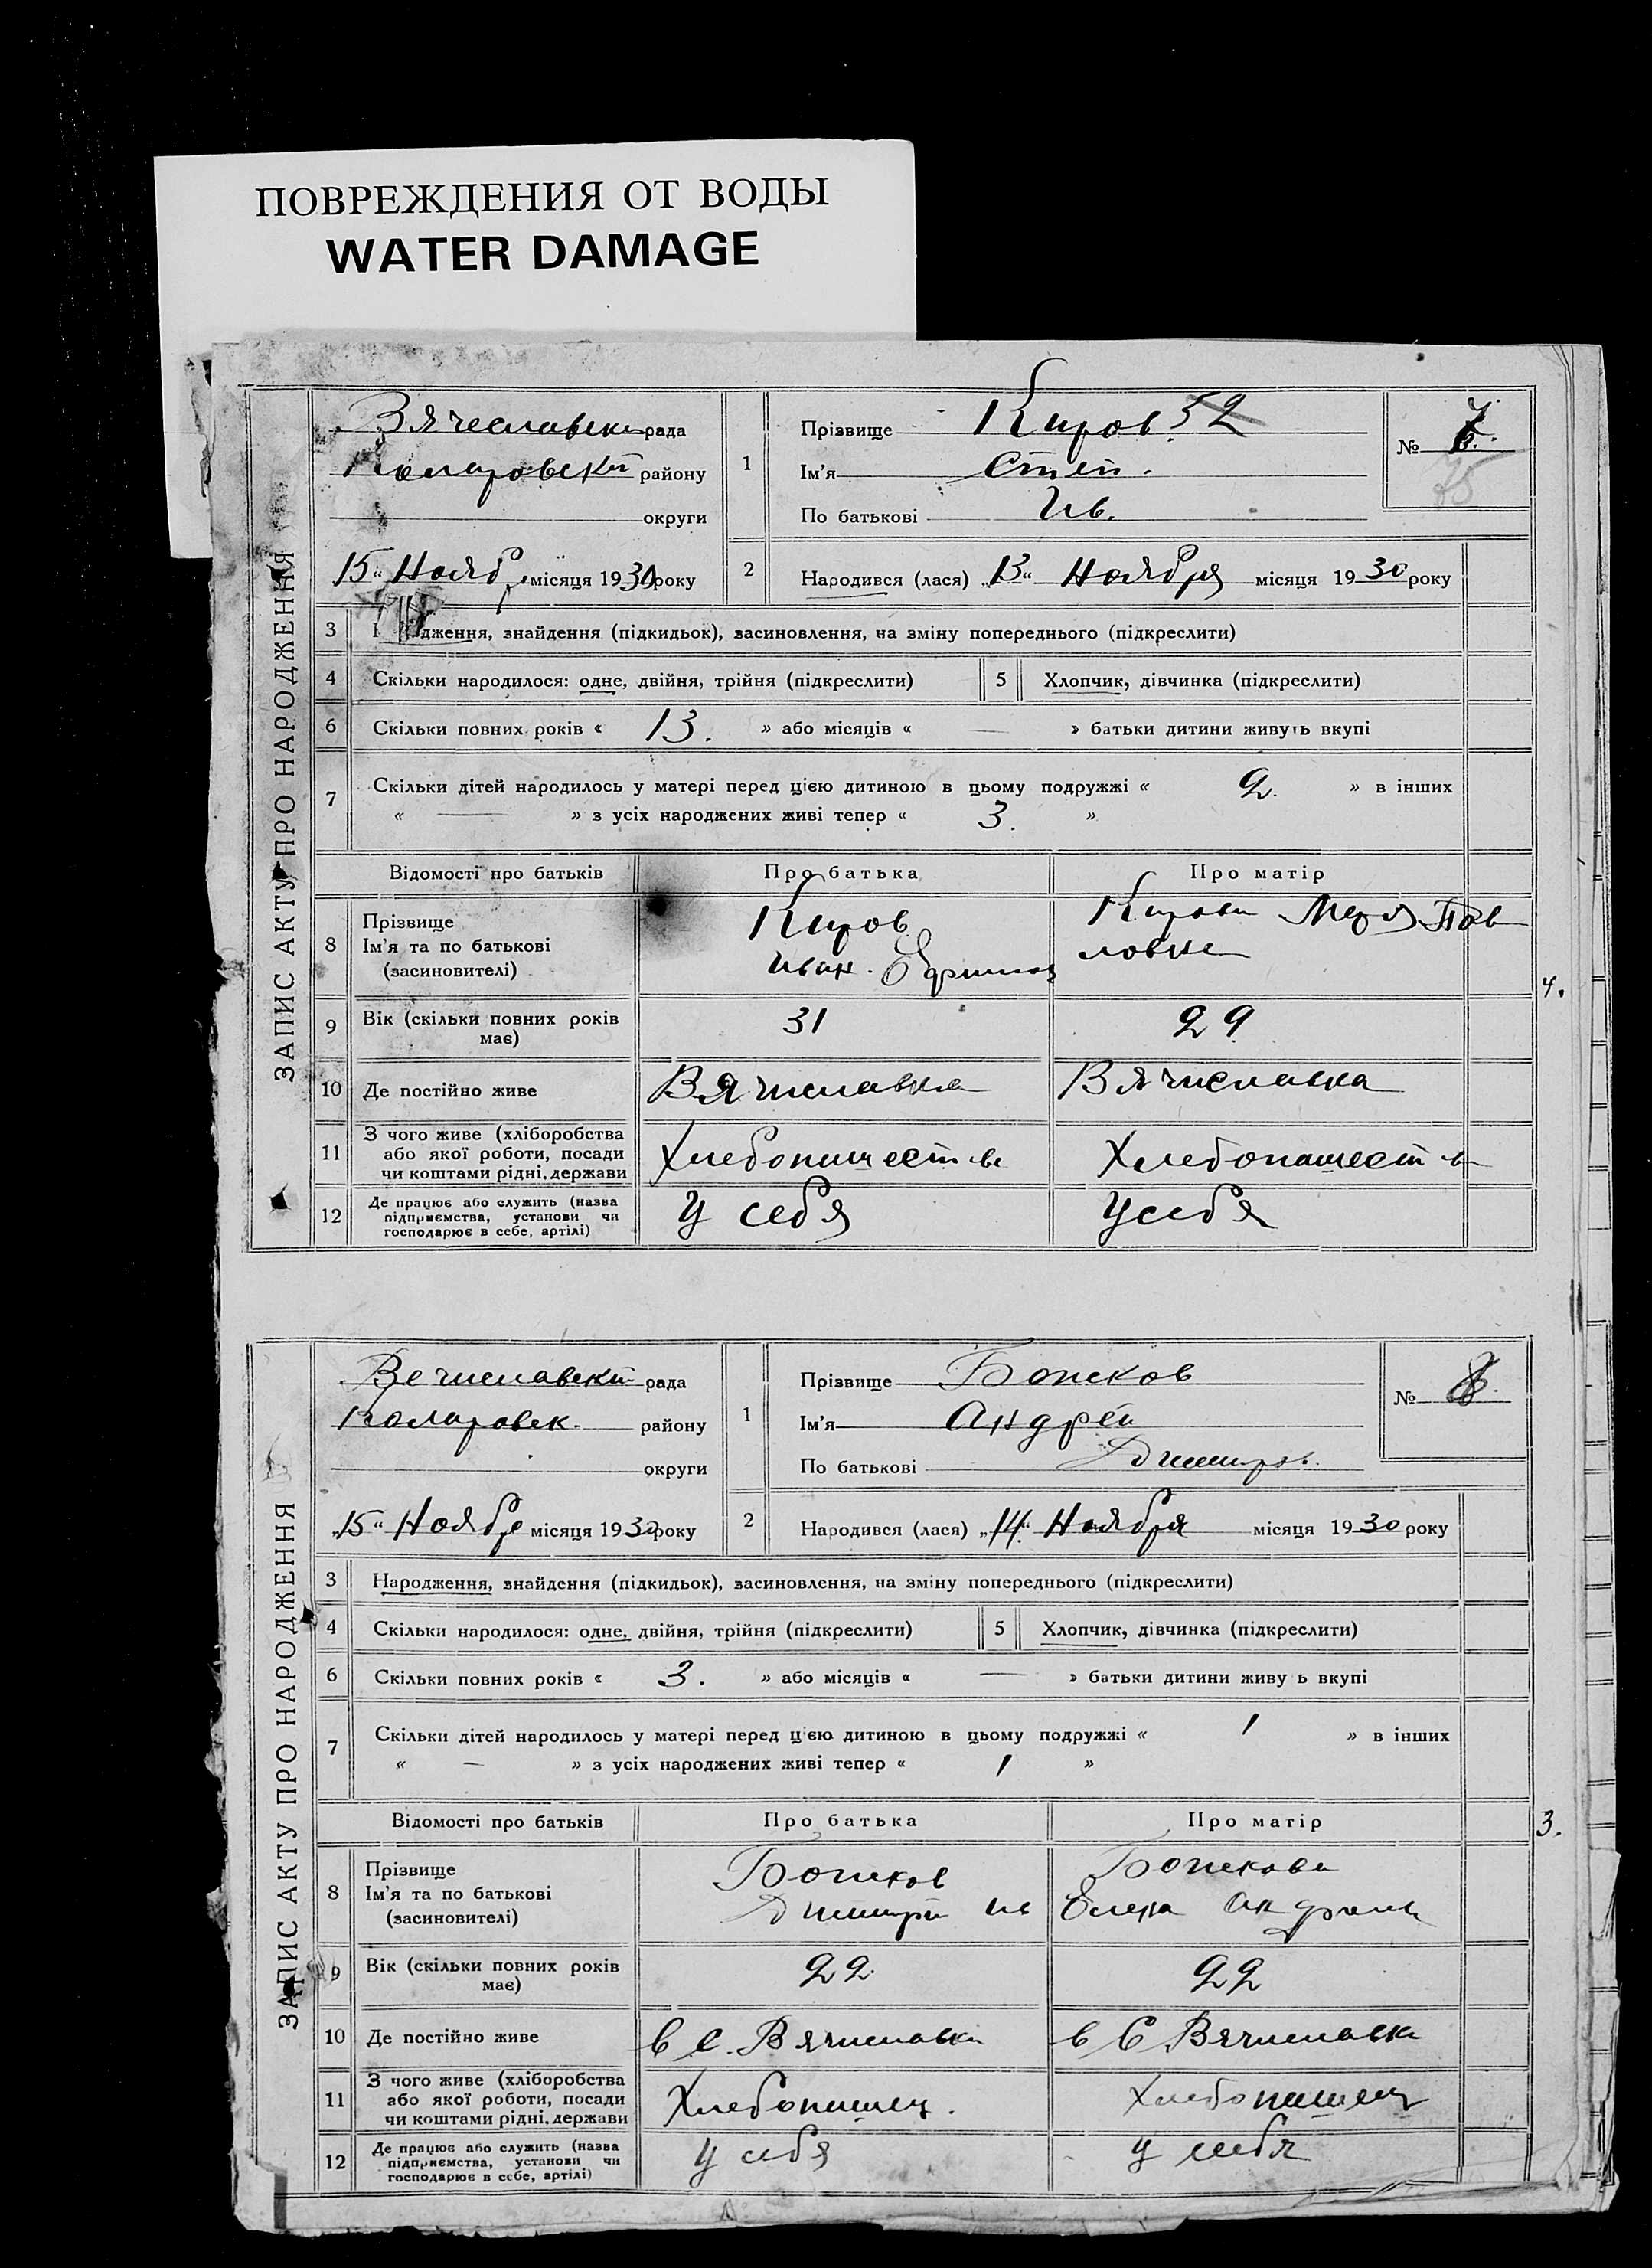 ПОВРЕЖДЕНИЯ ОТ ВОДЫ
WATER DAMAGE
ЗАПИС АКТУ ПРО НАРОДЖЕННЯ
Вячеславськ рада
Коларовскй району
округи
15 " Ноябр місяця 1930 року
1
Прізвище Киров. 52
Ім'я Степ.
По батькові Ив.
№ 7.
2
Народився (лася) „13" Ноября місяця 1930 року
3 дження, знайдення (підкидьок), засиновлення, на зміну попереднього (підкреслити)
4 Скільки народилося: одне, двійня, трійня (підкреслити) 5 Хлопчик, дівчинка (підкреслити)
6 Скільки повних років « 13. » або місяців « — » батьки дитини живуть вкупі
7 Скільки дітей народилось у матері перед цією дитиною в цьому подружжі « 2. » в інших
« — » з усіх народжених живі тепер « 3. »
Відомості про батьків Про батька Про матір
8 Прізвище
Ім'я та по батькові
(засиновителі)
Киров
Иван.
Кирова Мария Пав
ловна
4.
9 Вік (скільки повних років
має)
31 29
10 Де постійно живе Вячиславка Вячиславка
11 З чого живе (хліборобства
або якої роботи, посади
чи коштами рідні, держави
Хлебопашеств Хлебопашеств
12 Де працює або служить (назва
підприємства, установи чи
господарює в себе, артілі)
У себя У себя
ЗАПИС АКТУ ПРО НАРОДЖЕННЯ
Вечиславскй рада
Коларовск. району
округи
„15" Ноябре місяця 1930 року
1
Прізвище Божков
Ім'я Андрей
По батькові Дмитров.
№ 8.
2
Народився (лася) „14." Ноября місяця 1930 року
3 Народження, знайдення (підкидьок), засиновлення, на зміну попереднього (підкреслити)
4 Скільки народилося: одне, двійня, трійня (підкреслити) 5 Хлопчик, дівчинка (підкреслити)
6 Скільки повних років « 3. » або місяців « — » батьки дитини живу ь вкупі
7 Скільки дітей народилось у матері перед цією дитиною в цьому подружжі « 1 » в інших
« — » з усіх народжених живі тепер « 1 »
Відомості про батьків Про батька Про матір
3.
8 Прізвище
Ім'я та по батькові
(засиновителі)
Божков
Дмитрий Ив
Божкова
Елена
9 Вік (скільки повних років
має)
22. 22
10 Де постійно живе в с. Вячиславка в С. Вячиславка
11 З чого живе (хліборобства
або якої роботи, посади
чи коштами рідні, держави
Хлебопашец. Хлебопашец
12 Де працює або служить (назва
підприємства, установи чи
господарює в себе, артілі)
у себя у себя